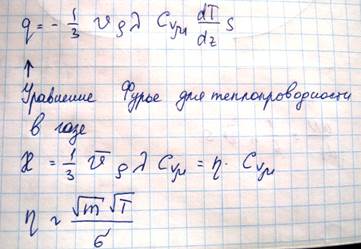 q = - 1/3 v̄ ρ λ Cуд dT/dz S
↑
Уравнение Фурье для теплопроводности
в газе
ϰ = 1/3 v̄ ρ λ Cуд = η · Cуд
η ~ √m √T / σ